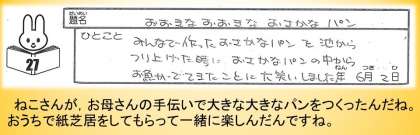 だいめい
題名
おおきなおおきな おさかな パン
ひとこと
みんなで作ったおさかなパンを池から
つり上げた時に おさかなパンの中から
お魚がでてきたことに大笑いしました
ねん つき ひ
年 6月 2日
27
ねこさんが，お母さんの手伝いで大きな大きなパンをつくったんだね。
おうちで紙芝居をしてもらって一緒に楽しんだんですね。